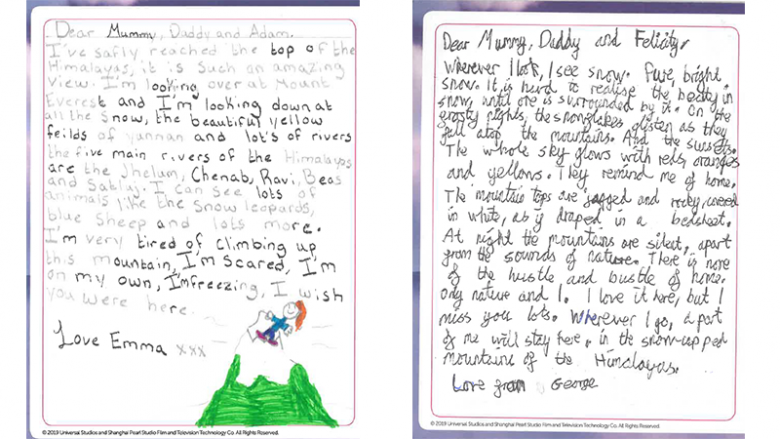 Dear Mummy, Daddy and Adam.
I've safly reached the top of the
Himalayas, it is such an amazing
view. I'm looking over at Mount
Everest and I'm looking down at
all the snow, the beautiful yellow
feilds of yunnan and lot's of rivers
the five main rivers of the Himalayas
are the Jhelum, Chenab, Ravi, Beas
and Satlaj. I can see lots of
animals like the snow leopards,
blue sheep and lots more.
I'm very tired of climbing up
this mountain, I'm scared, I'm
on my own, Imfreezing, I wish
you were here.
Love Emma xxx
© 2019 Universal Studios and Shanghai Pearl Studio Film and Television Technology Co. All Rights Reserved.
Dear Mummy, Daddy and Felicity,
Wherever I look, I see snow. Pure, bright
snow. It is hard to realise the beauty in
snow, until one is surrounded by it. On the
frosty nights, the snowflakes glisten as they
fall atop the mountains. And the sunsets.
The whole sky glows with reds, oranges
and yellows. They remind me of home.
The mountain tops are jagged and rocky,
in white, as if draped in a bedsheet.
At night the mountains are silent, apart
from the sounds of nature. There is none
of the hustle and bustle of home.
only nature and I. I love it here, but I
miss you lots. Wherever I go, a part
of me will stay here, in the snow-capped
mountains of the Himalayas.
Love from George
© 2019 Universal Studios and Shanghai Pearl Studio Film and Television Technology Co. All Rights Reserved.